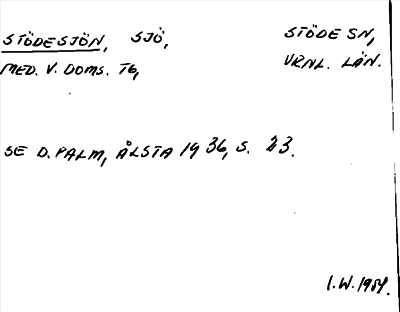 STÖDESJÖN, SJÖ, STÖDE SN,
MED. V. DOMS. TG, VRNL. LÄN.
SE D. PALM, ÅLSTA 1936, S. 23.
I.W. 1954.